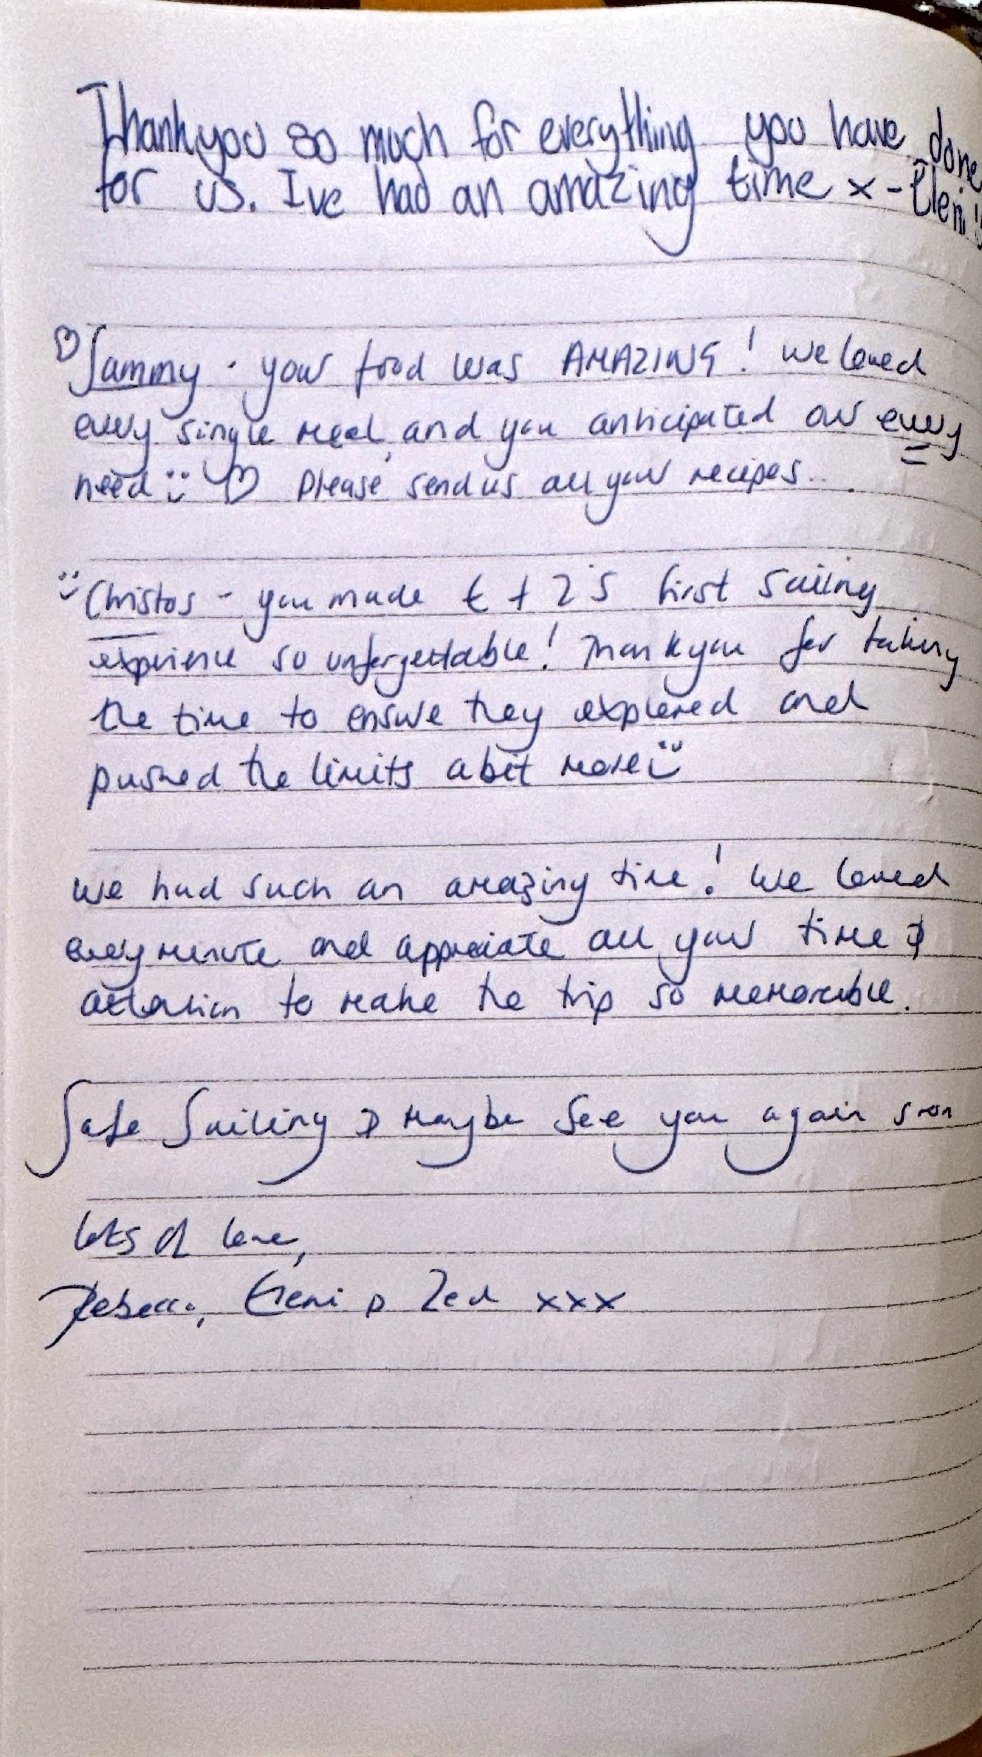 Thankyou so much for everything you have done
for us. Ive had an amazing time x - Eleni
♡ Sammy - your food was AMAZING! We loved
every single meal and you anticipated our every
need :) ♡ Please send us all your recipes...
:) Christos - you made E + Z's first sailing
experience so unforgettable! Thank you for taking
the time to ensure they explored and
pushed the limits a bit more :)
We had such an amazing time! We loved
every minute and appreciate all your time &
attention to make the trip so memorable.
Safe Sailing & maybe see you again soon
Lots of love,
Rebecca, Eleni & Zed xxx